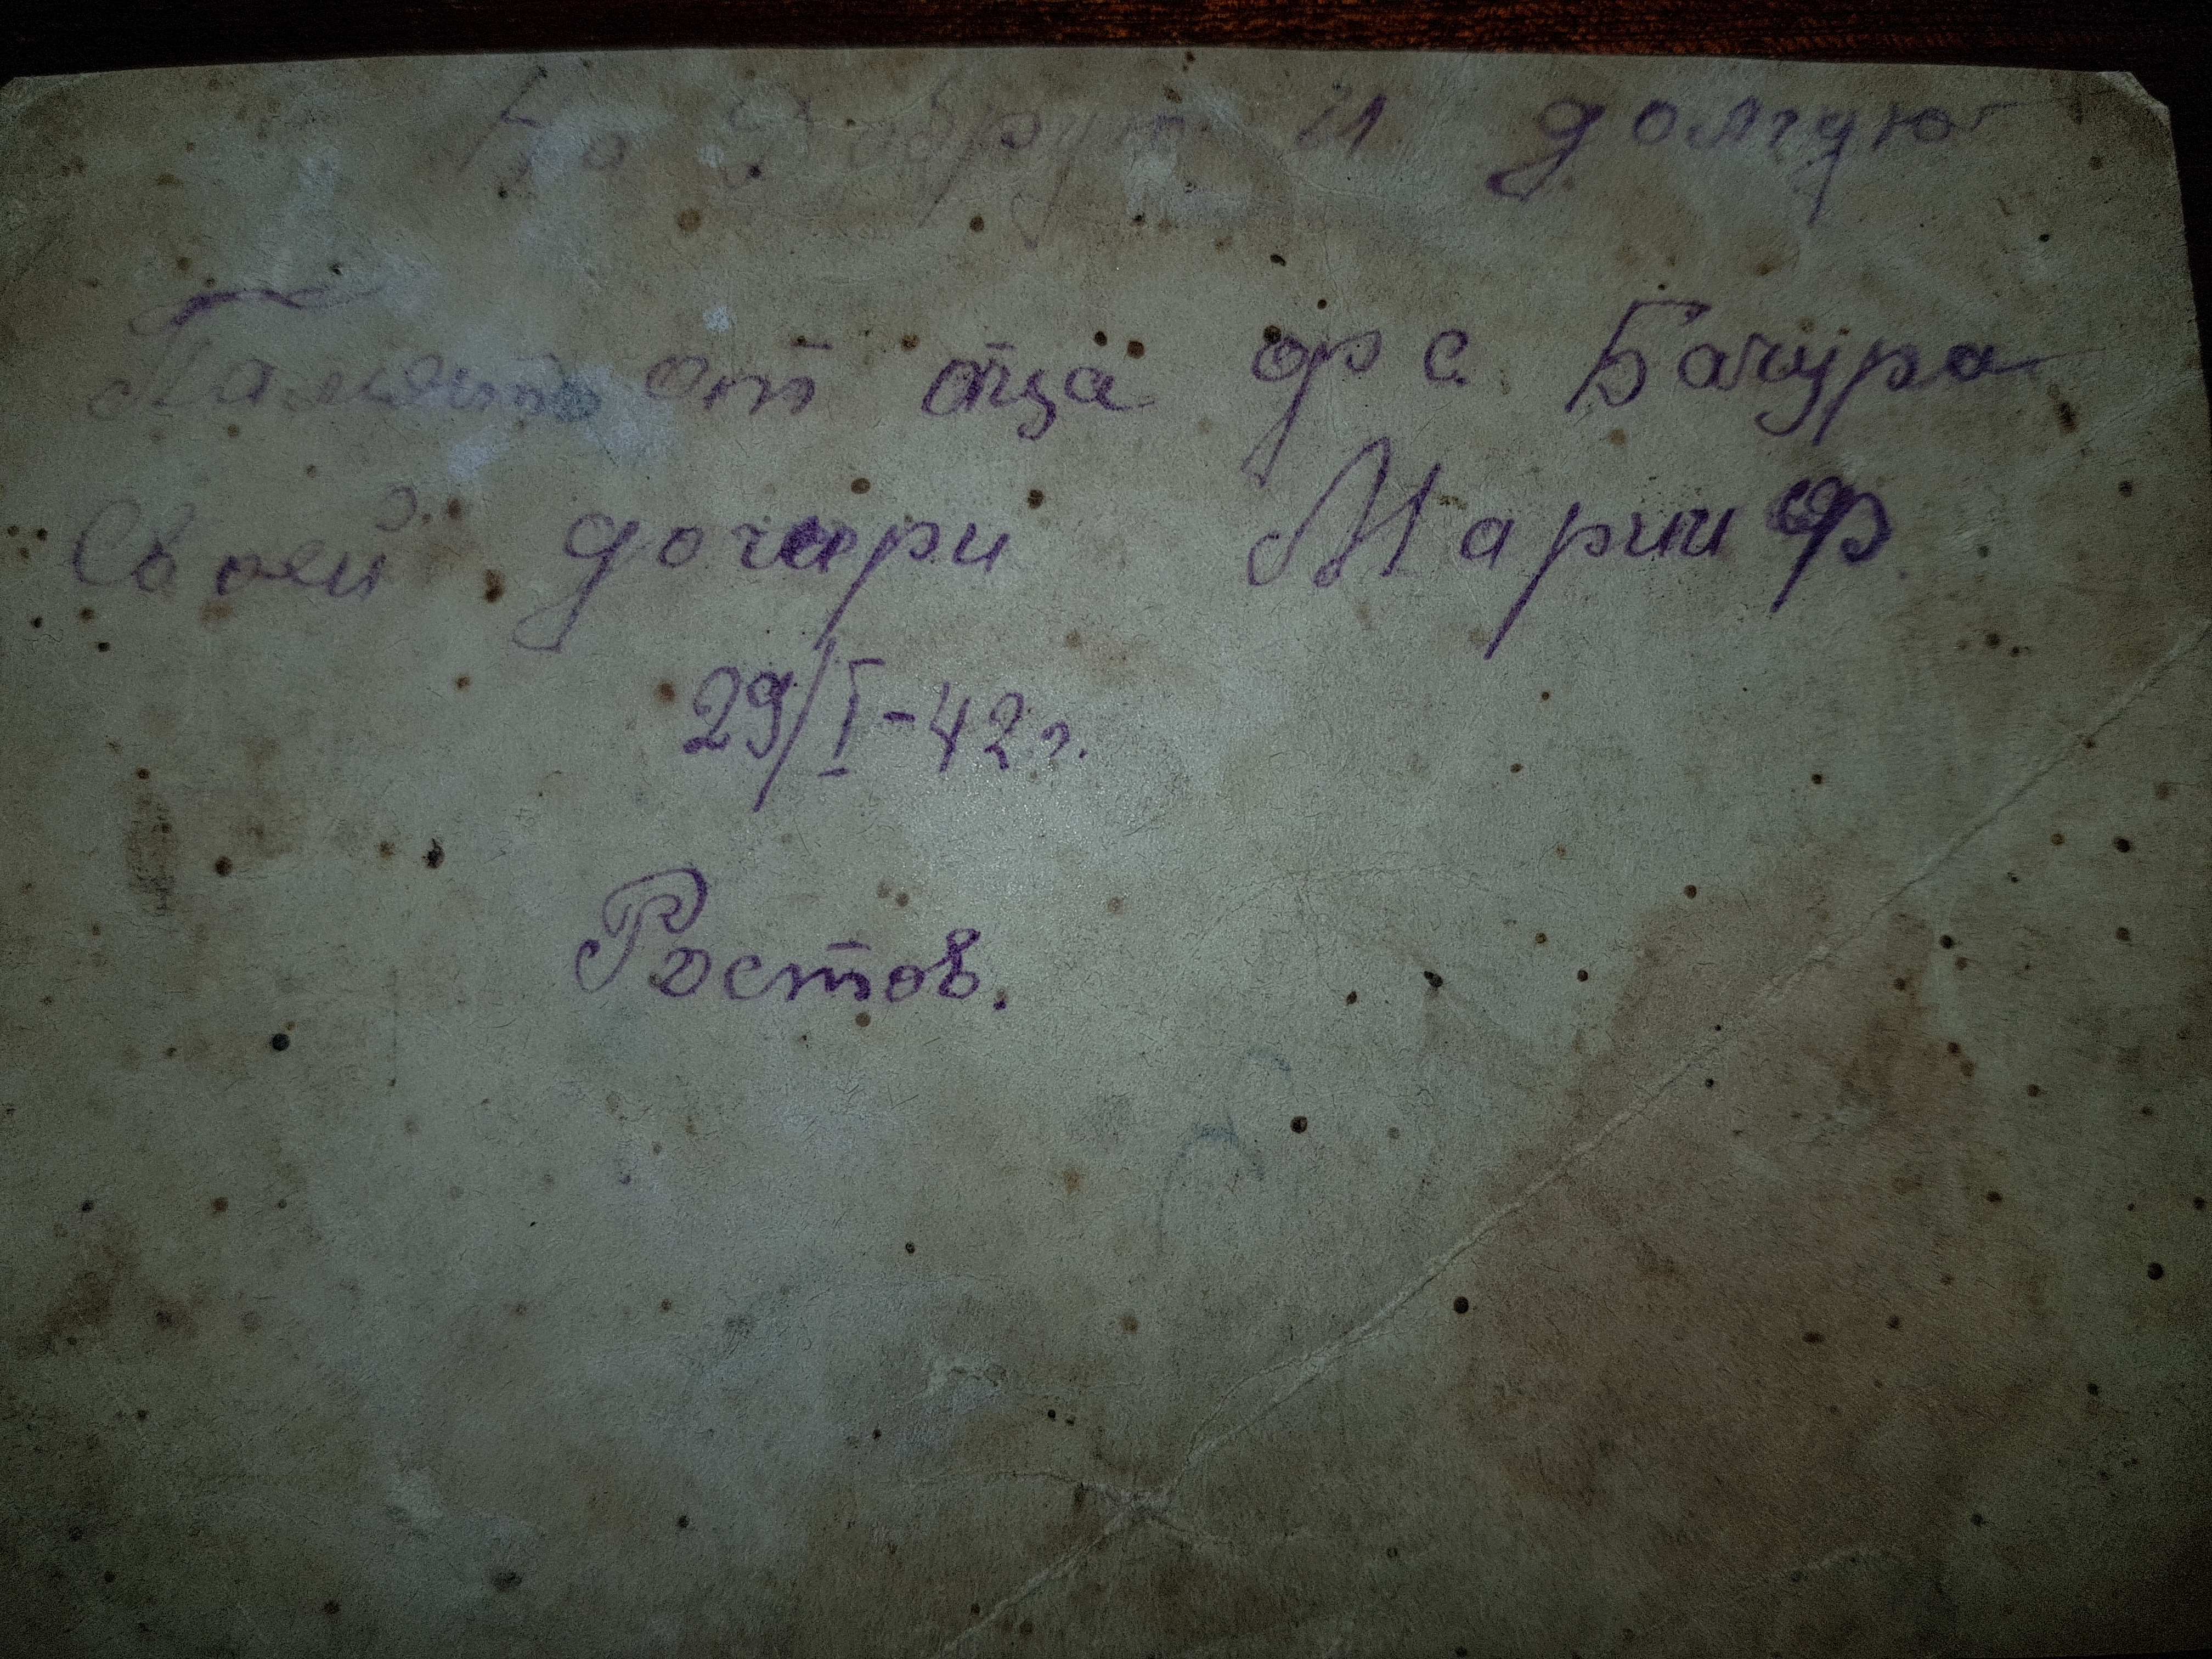 На добрую и долгую
Память от отца Ф С. Бачура
Своей дочери Марии Ф
29/I-42 г.
Ростов.